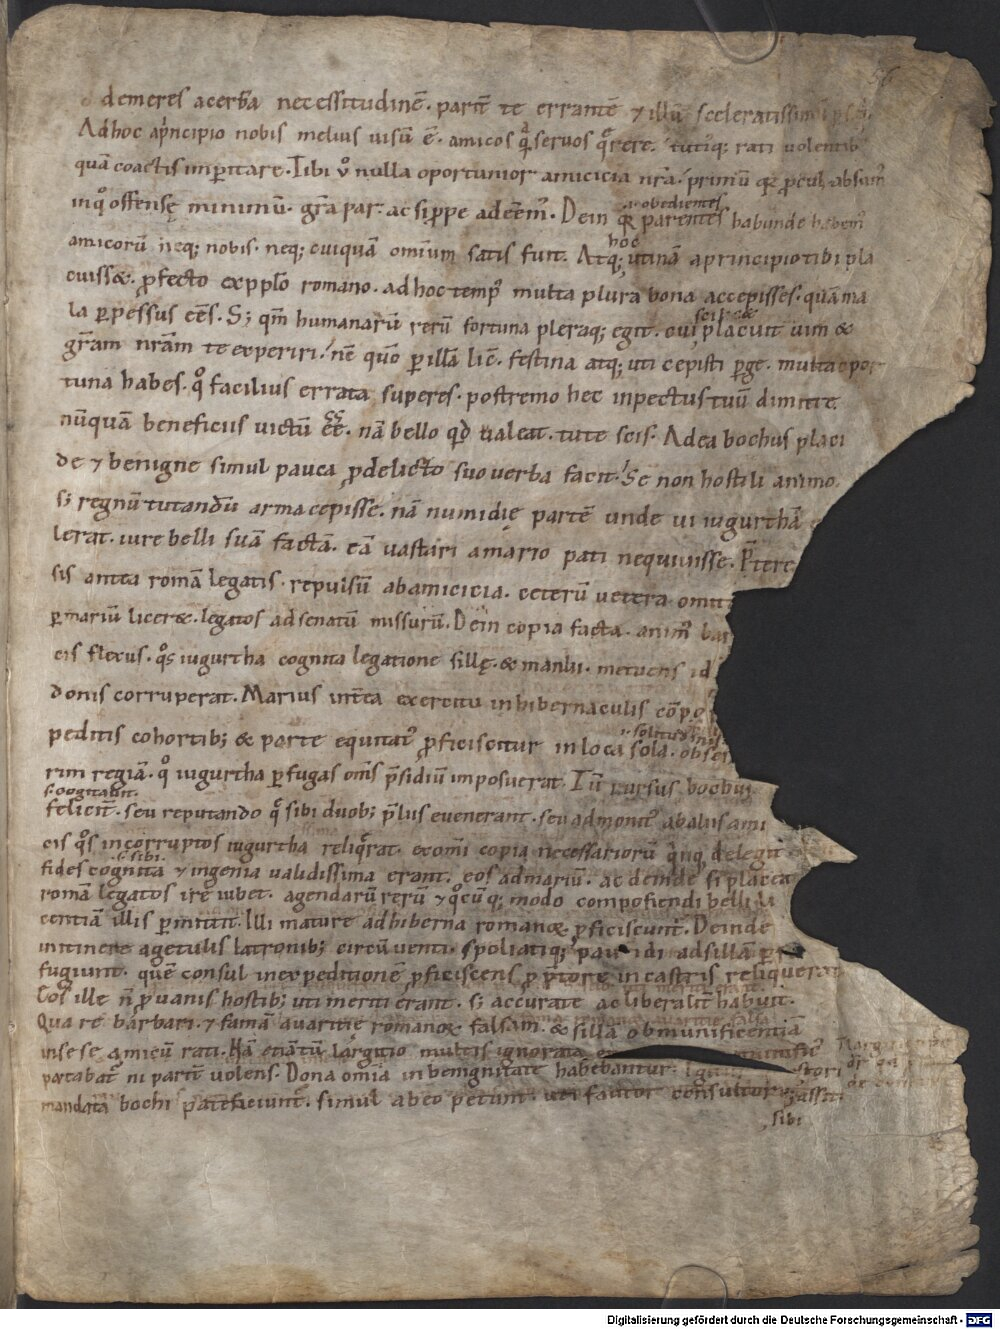 56
demeres acerba necessitudinē. parit̄ te errantē ⁊ illū sceleratissimū psq̄.
Ad hoc ap̄ncipio nobis melius uisū ē. amicos q̄ seruos q̄rere. tutiq; rati uolentib
quā coactis imp̄itare. Tibi ꝟ nulla oportunior amicicia nr̄a. primū qꝛ p̄cul absum᷒
inq̊ offensę minimū. gr̄a par. ac si p̄pe adeēm᷒. Dein qꝛ parentes habunde habem᷒
.i. obedientes
amicorū neq; nobis. neq; cuiquā omnium satis fuit. Atq; utinā a principio tibi pla
hoc
cuiss&. p̄fecto ex pplo romano. ad hoc temp᷒ multa plura bona accepisses. quā ma
la ꝑpessus eēs. S; qm̄ humanarū rerū fortuna pleraq; egit. cui placuit uim &
scilic&
gr̄am nr̄am te experiri. nc̄ quō ꝑ illā lic̄. festina atq; uti cepisti ꝑge. multa opor
tuna habes. q̊ facilius errata superes. postremo hec in pectus tuū dimitte
nūquā beneficiis uictū eē. nā bello qd ualeat. tute scis. Ad ea bochus placi
de ⁊ benigne simul pauca p̄ delicto suo uerba facit. Se non hostili animo.
s; regnū tutandū arma cepisse. nā numidię partē unde ui iugurthā
lerat. iure belli suā factā. eā uastari a mario pati nequiuisse. P̄tere
sis antea romā legatis. repulsū ab amicicia. ceterū uetera omit
ꝑ mariū licer&. legatos ad senatū missurū. Dein copia facta. anim᷒ bar
eis flexus. q̊s iugurtha cognita legatione sillę. & manlii. metuens id
donis corruperat. Marius int̄ea exercitu in hibernaculis cōpo
peditis cohortib; & parte equitat᷒ p̄ficiscitur in loca sola. obses
.i. solitudi
rim regiā. q̊ iugurtha ꝑfugas om̄s p̄sidiū imposuerat. Tū rursus bochus
s. cogitabit.
felicit̄. seu reputando q̊ sibi duob; p̄liis euenerant. seu admonit᷒ ab aliis ami
cis q̊s incorruptos iugurtha reliq̄rat. ex om̄i copia necessariorū q̄nq; delegit
s. sibi
fides cognita ⁊ ingenia ualidissima erant. eos ad mariū. ac deinde si placea
romā legatos ire iubet. agendarū rerū ⁊ q̊cūq; modo componendi belli li
centiā illis ꝑmittit. Illi mature ad hiberna romanoꝝ p̄ficiscunt᷒. Deinde
in itinere a getulis latronib; circūuenti. spoliatiq; pauidi ad sillā ꝑ
fugiunt. quē consul in expeditionē p̄ficiscens p̄ p̄tore in castris reliquerat
Eos ille n̄ p̄ uanis hostib; uti meriti erant. s; accurate ac liberalit̄ habuit.
Qua re barbari. ⁊ famā auaritię romanoꝝ falsam. & sillā ob munificentiā
in se se amicū rati. Nā etiātū largitio multis ignorata munific᷒
putabat᷒ ni parit̄ uolens. Dona om̄ia in benignitate habebantur.
mandata bochi patefeciunt. simul ab eo petunt. uti fautor consultorq; assit
sibi
Digitalisierung gefördert durch die Deutsche Forschungsgemeinschaft - DFG